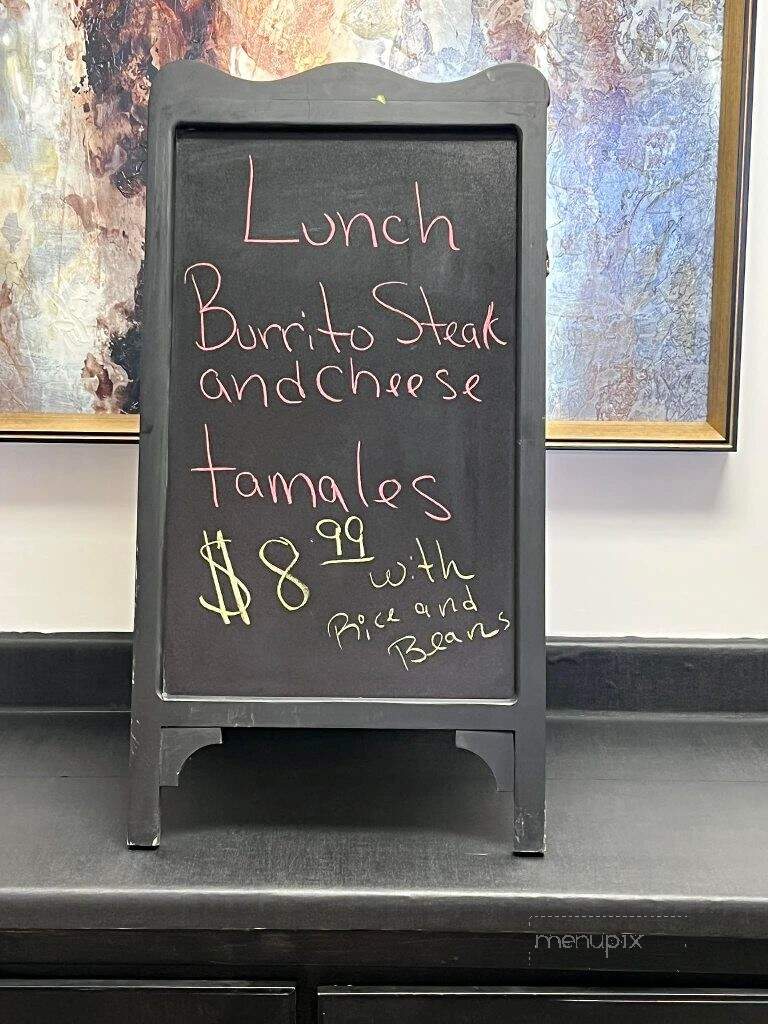 Lunch
Burrito Steak
and cheese
tamales
$8.99 with
Rice and
Beans
menupix